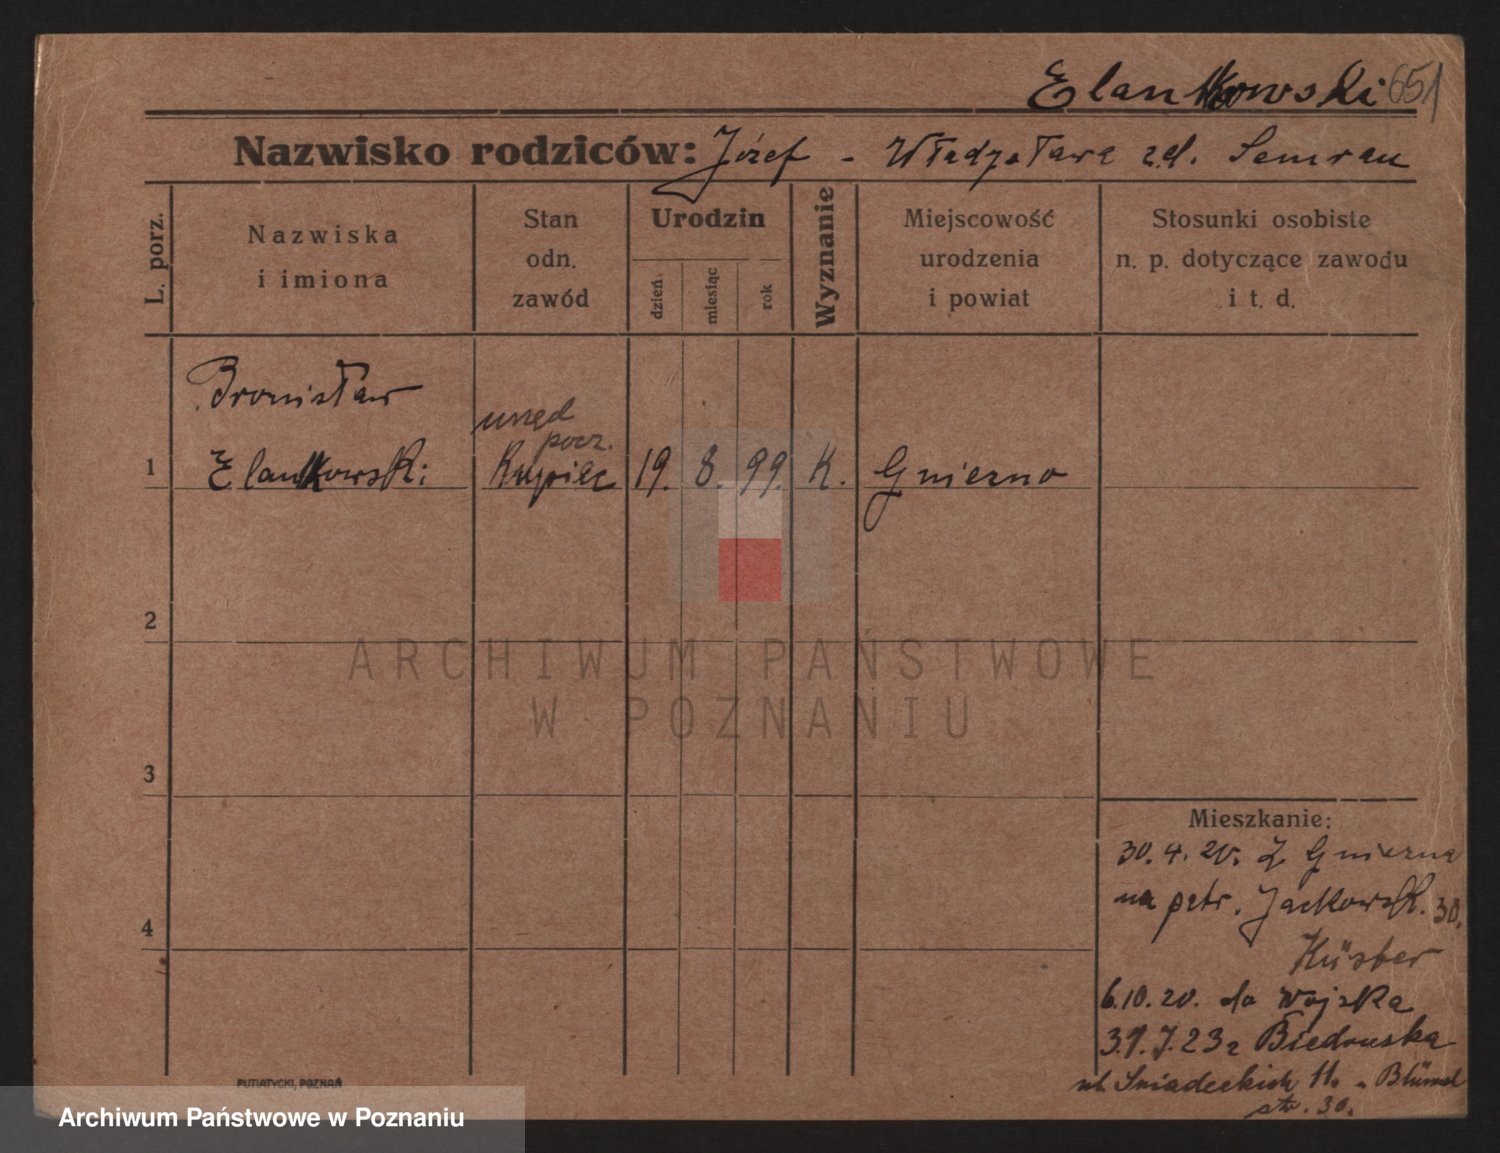 Elankowski 651
Nazwisko rodziców: Józef - Władysława zd. Semrau
L. porz.
Nazwiska
i imiona
Stan
odn.
zawód
Urodzin
dzień
miesiąc
rok
Wyznanie
Miejscowość
urodzenia
i powiat
Stosunki osobiste
n. p. dotyczące zawodu
i t. d.
Bronisław
urzęd
pocz.
1 Elankowski Kupiec 19. 8. 99. K. Gniezno
2
ARCHIWUM PAŃSTWOWE
W POZNANIU
3
Mieszkanie:
30. 4. 20. Z Gniezna
na prtr. Jackowsk. 30.
4
Küster
6.10.20. do wojska
31.7.23 z Biedruska
ul. Sniadeckich 11. - Blümel
str. 30.
PUTIATYCKI, POZNAŃ
Archiwum Państwowe w Poznaniu